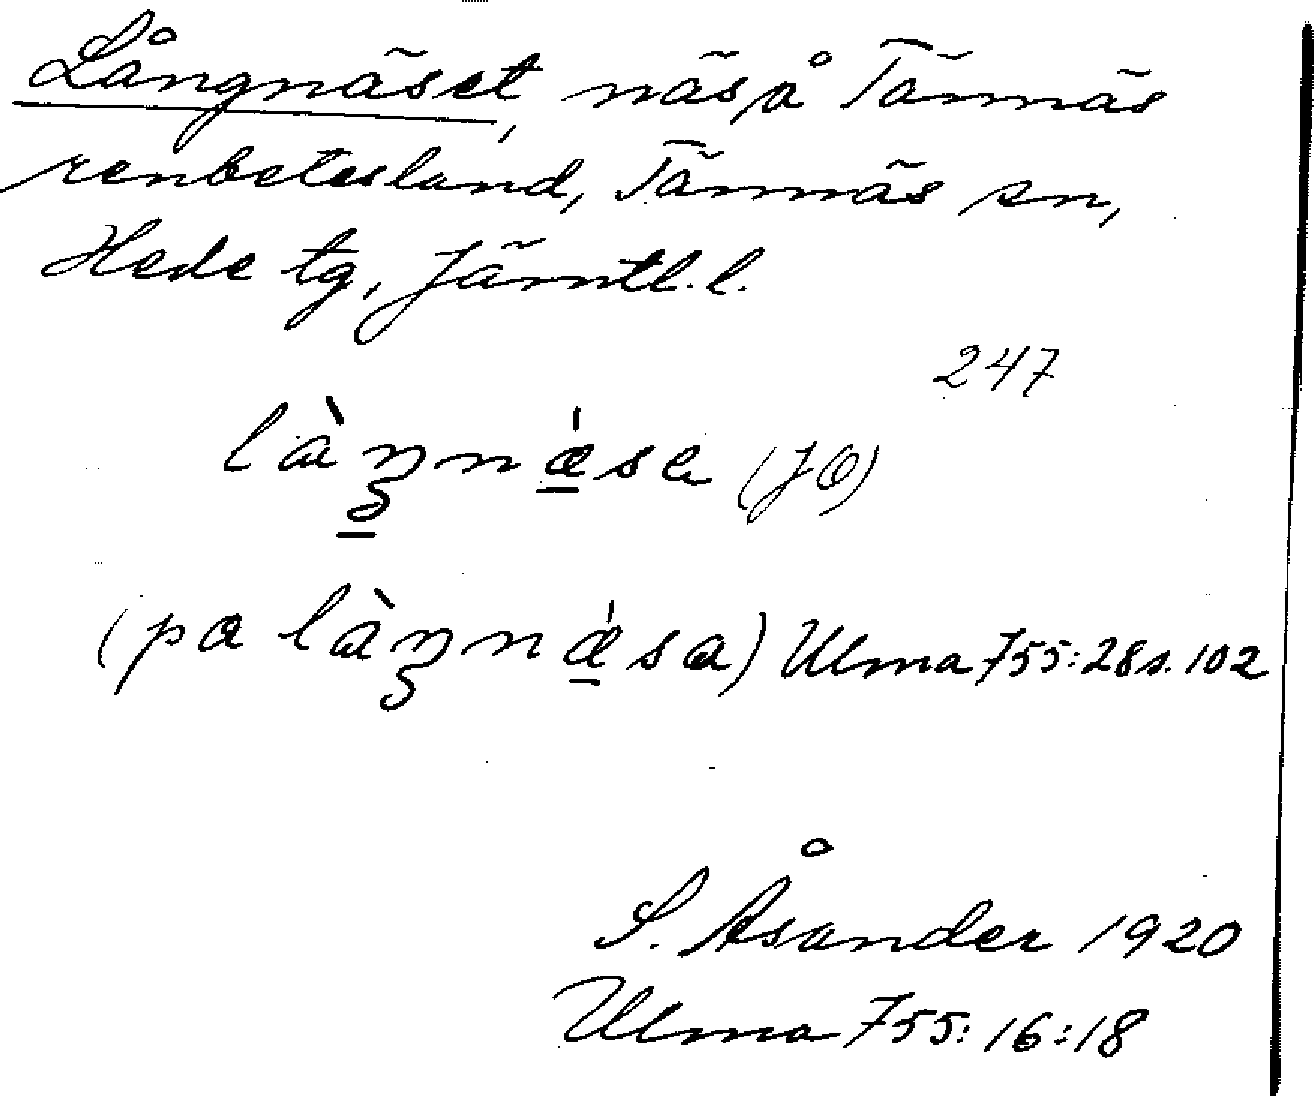 Långnäset, näs på Tännäs
renbetesland, Tännäs sn,
Hede tg, Jämtl. l.
247
làŋnǽse (JO)
(pa làŋnǽsa) Ulma 755:28 s. 102
S. Åsander 1920
Ulma 755:16:18